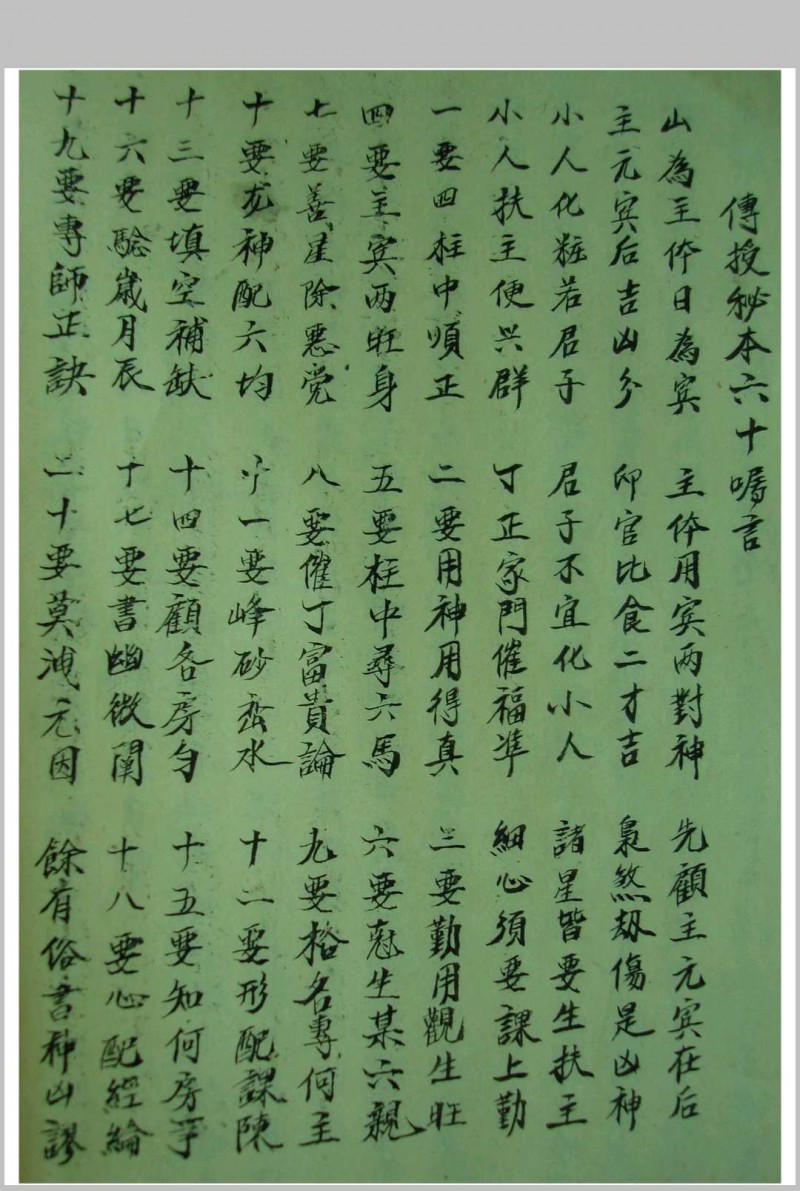 傳授秘本六十嘱言
山為主体日為宾 主体用宾两對神 先顧主元宾在后
主元宾后吉凶分 印官比食二才吉 枭煞刼傷是凶神
小人化粧若君子 君子不宜化小人 諸星皆要生扶主
小人扶主便兴群 丁正家門催福準 細心須要課上勤
一要四柱中順正 二要用神用得真 三要勤用觀生旺
四要主宾两旺身 五要柱中尋六馬 六要尅生某六親
七要善星除惡党 八要催丁富貴論 九要格名專何主
十要龙神配六均 十一要峰砂並水 十二要形配課陳
十三要填空補缺 十四要顧各房匀 十五要知何房
十六要騐歲月辰 十七要書幽微闡 十八要心配經綸
十九要專師正訣 二十要莫洩元因 餘有俗書神凶謬